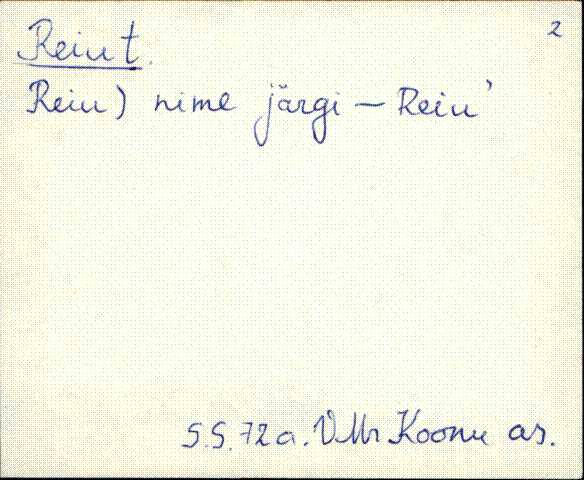 2
Rein t.
Rein) nime järgi — Rein'
S.S. 72 a. VMr Koonu as.